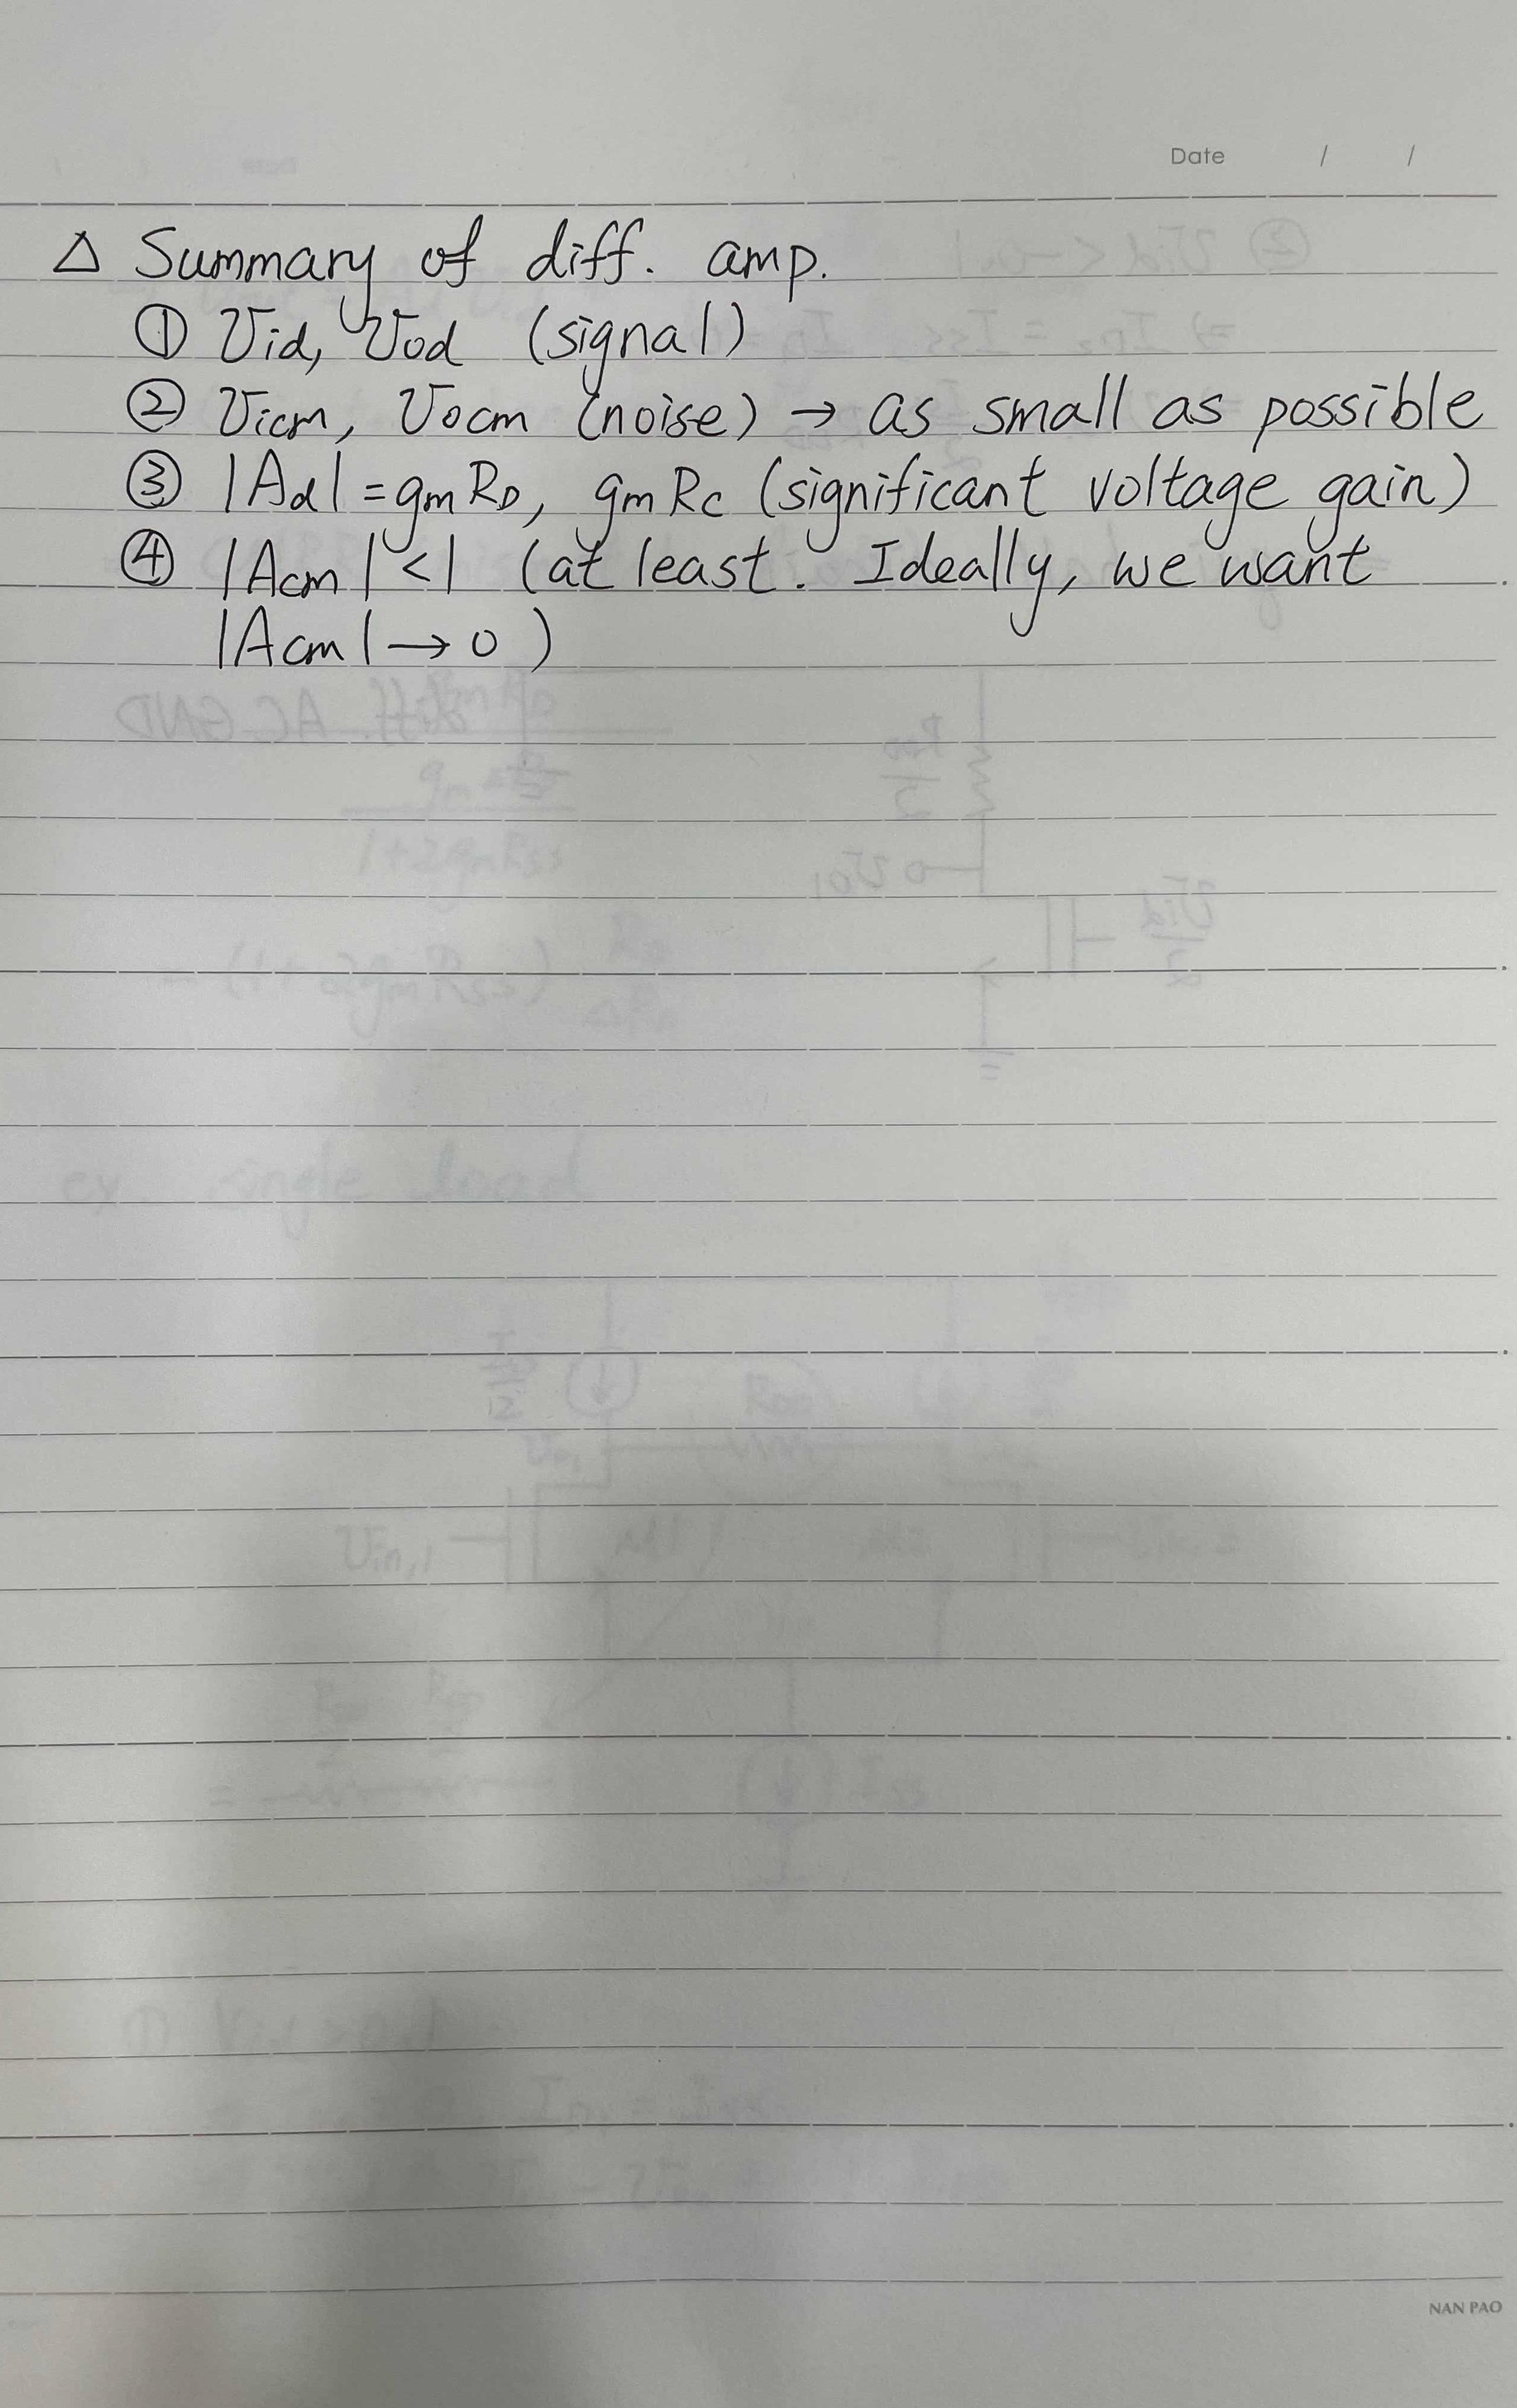 Date / /
△ Summary of diff. amp.
① Vid, Vod (signal)
② Vicm, Vocm (noise) → as small as possible
③ |Ad| = gm RD, gm RC (significant voltage gain)
④ |Acm| < 1 (at least. Ideally, we want
|Acm| → 0 )
NAN PAO